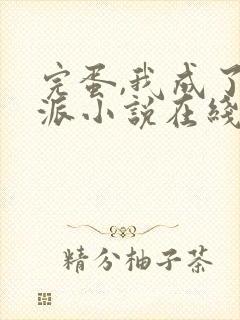 完蛋,我成了
派小说在线
精分柚子茶